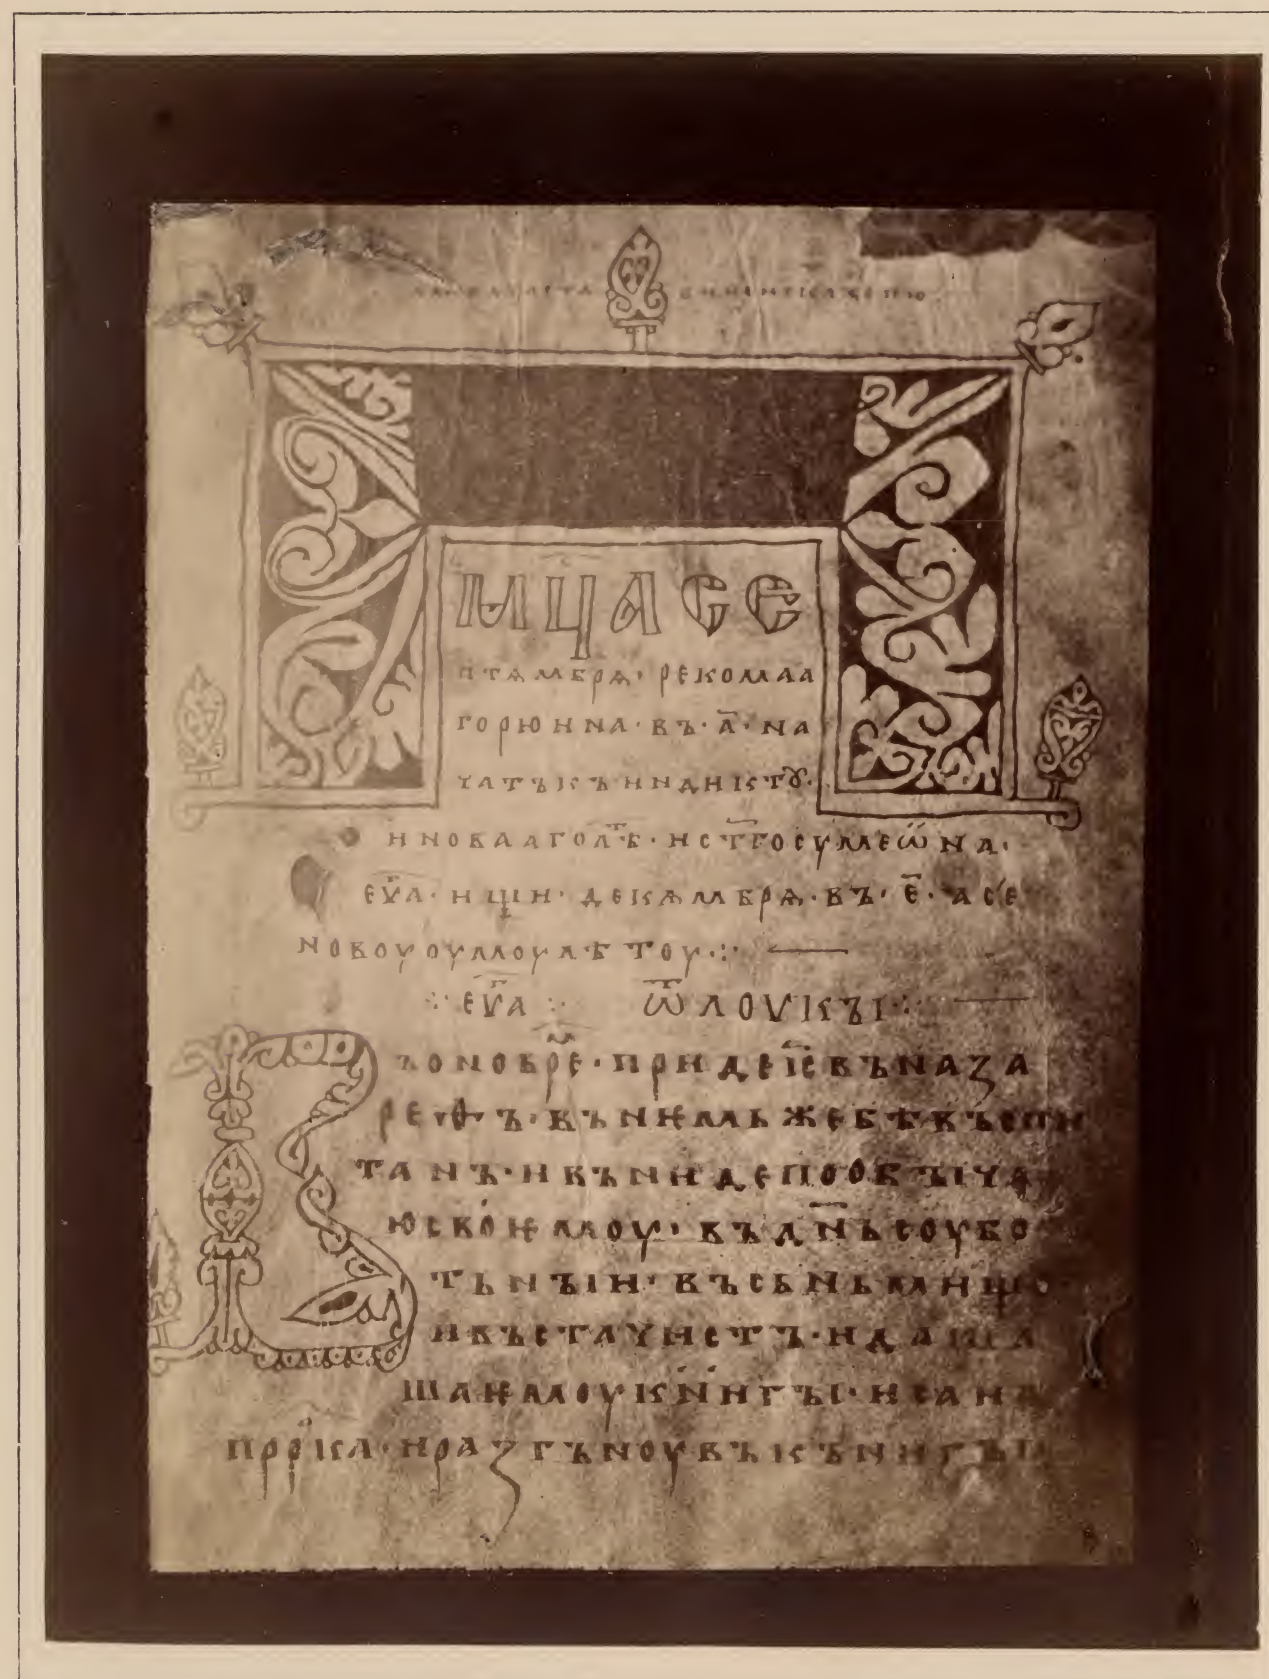 МЦА СЕ
птѧмбрѧ · рекомаа
горюина · въ · а҃ · на
чатъкъ индиктꙋ ·
и новааго лѣ҃т · и ст҃го сумеѡна ·
еѵ҃а · ищи · декѧмбрѧ · въ · е҃ · а се
новоуоумоу лѣтоу ·:·
·:· еѵ҃а ·:· ѿ лоѵкꙑ ·:·
Въ оно врѣ҃м · приде і҃с въ наза
реѳъ · въ нѥмь же бѣ въспи
танъ · и въниде по обꙑчаꙗ
ю своѥмоу · въ дн҃ь соубо
тьнꙑи · въ сьньмище
и въста чистъ · и даша
ѥмоу книгꙑ · исаиꙗ
пр҃рка · и разгъноувъ кънигꙑ